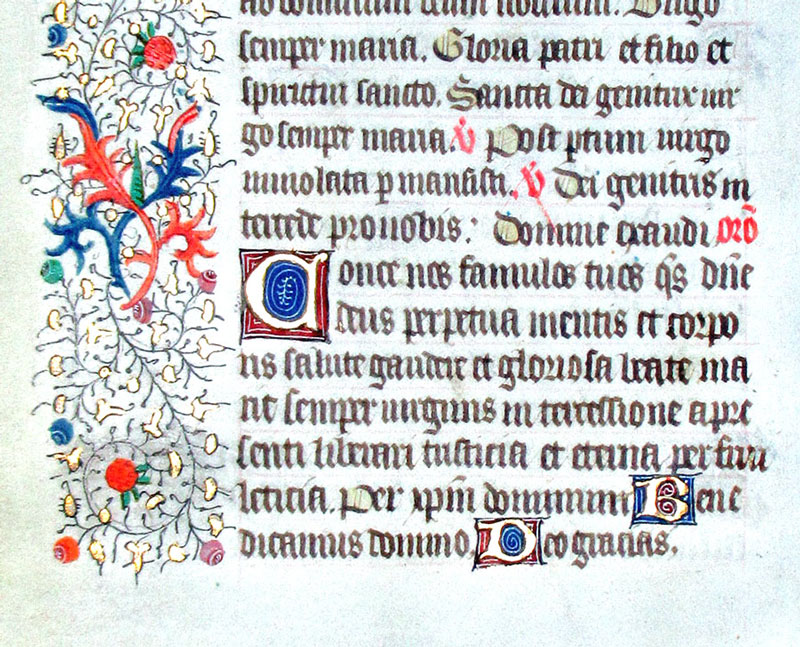 dominum nostrum. Virgo
semper maria. Gloria patri et filio et
spiritui sancto. Sancta dei genitrix uir
go semper maria. V Post ptum uirgo
inuiolata p mansisti. V Dei genitrix in
tercede pro nobis: Domine exaudi oro
Conce nos famulos tuos qs dne
deus perpetua mentis et corpo
ris salute gaudere et gloriosa beate ma
rie semper uirginis in tercessione a pre
senti liberari tristicia et eterna per frui
leticia. Per xpm dominum Bene
dicamus domino. Deo gracias.